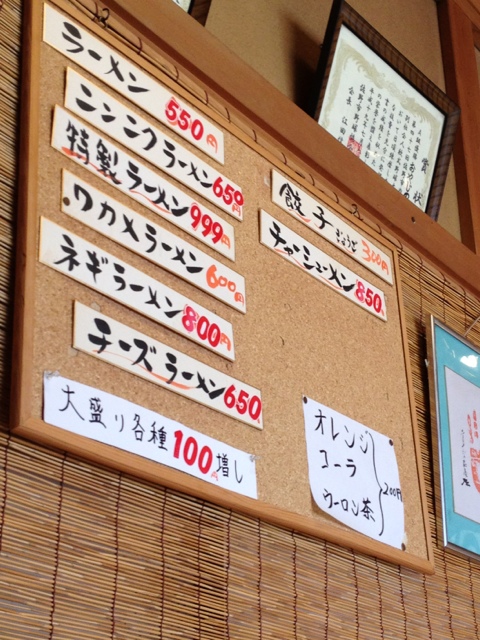 ラーメン 550円
ニンニクラーメン 650円
特製ラーメン 999円
ワカメラーメン 600円
ネギラーメン 800円
チーズラーメン 650
大盛り各種100円増し
餃子 ぎょうざ 300円
チャーシューメン 850
オレンジ
コーラ
ウーロン茶
200円
賞状